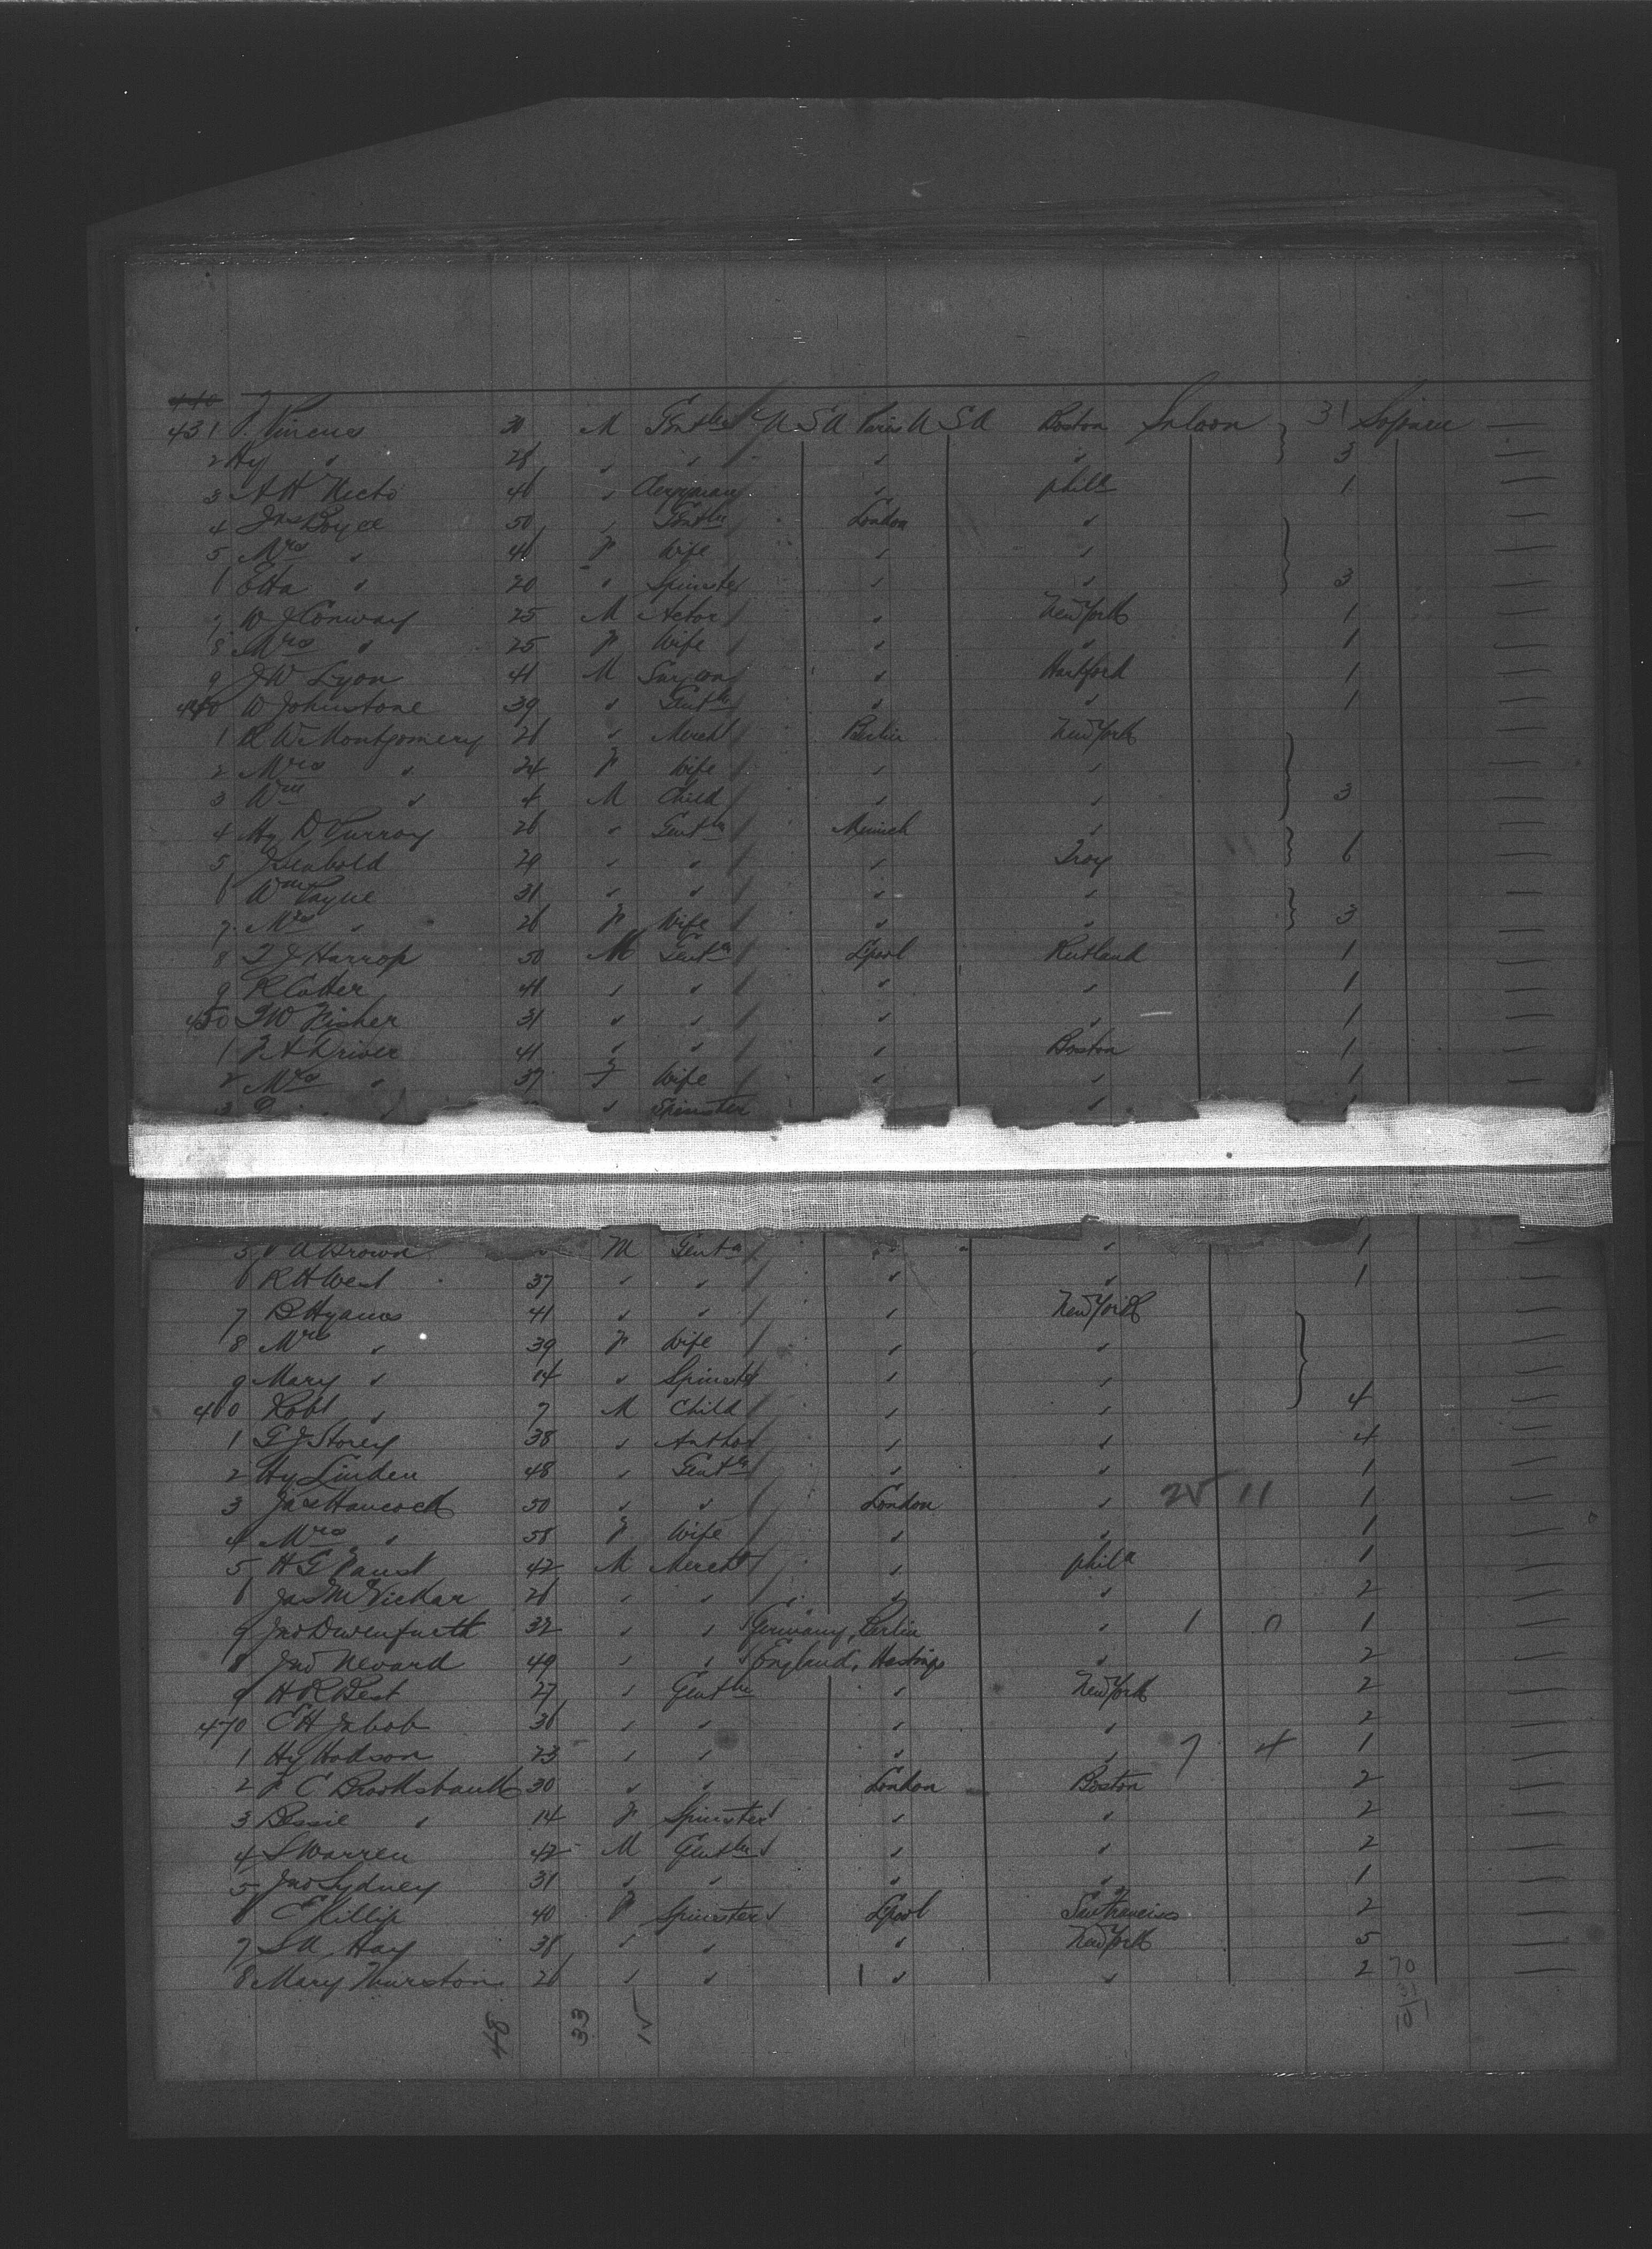 440
431 J. Pincus 30 M Gentln U S A Paris U S A Boston Saloon 3 Sojourn —
2 Hy " 28 " " " " 3 —
3 A H 46 " Clergyman " Phila 1 —
4 Jas Boyce 50 " Gentln London " —
5 Mrs " 46 F Wife " " —
6 Etta " 20 " Spinster " " 3 —
7 W J Conway 25 M Actor " New York 1 —
8 Mrs " 25 F Wife " " 1 —
9 J W Lyon 41 M Surgeon " Hartford 1 —
440 W Johnstone 39 " Gentln " " 1 —
1 R W Montgomery 26 " Mercht Berlin New York —
2 Mrs " 24 F Wife " " —
3 Wm " 4 M Child " " 3 —
4 Hy D Purroy 26 " Gentln Munich " —
5 29 " " " Troy 6 —
6 Wm Payne 31 " " " " —
7 Mrs " 26 F Wife " " 3 —
8 T J Harrop 50 M Gentln Lpool Rutland 1 —
9 R Cotter 41 " " " " 1 —
450 F W Fisher 31 " " " " 1 —
1 F A Driver 41 " " " Boston 1 —
2 Mrs " 37 F Wife " " 1 —
3 " " Spinster "
5 A Brown M Gentln " " 1
6 R H West 37 " " " " 1 —
7 B Hyams 41 " " " New York —
8 Mrs " 39 F Wife " " —
9 Mary " 14 " Spinster " " —
460 Robt " 7 M Child " " 4 —
1 G J Storey 38 " Author " " 4 —
2 Hy Linden 48 " Gentln " " 1 —
3 Jas Hancock 50 " " London " 25 11 1 —
4 Mrs " 58 F Wife " " 1 —
5 H G Faust 42 M Mercht " Phila 1 —
6 Jas McVickar 26 " " " " 2 —
9 Jno 32 " " Germany, Berlin " 1 0 1 —
8 Jno Nevard 49 " " England, Hastings " 2 —
9 H R Best 27 " Gentln " New York 2 —
470 E H Jakob 36 " " " " 2 —
1 Hy Hodson 23 " " " " 7 4 1 —
2 F C Brooksbank 30 " " London Boston 2 —
3 Bessie " 14 F Spinster " " 2 —
4 S Warren 42 M Gentln " " 2 —
5 Jno Sydney 31 " " " " 1 —
6 E Killip 40 F Spinster Lpool San Francisco 2 —
7 S A Hay 38 " " " New York 5 —
8 Mary Thurston 26 " " " " 2 —
70
31
101
48 33 15